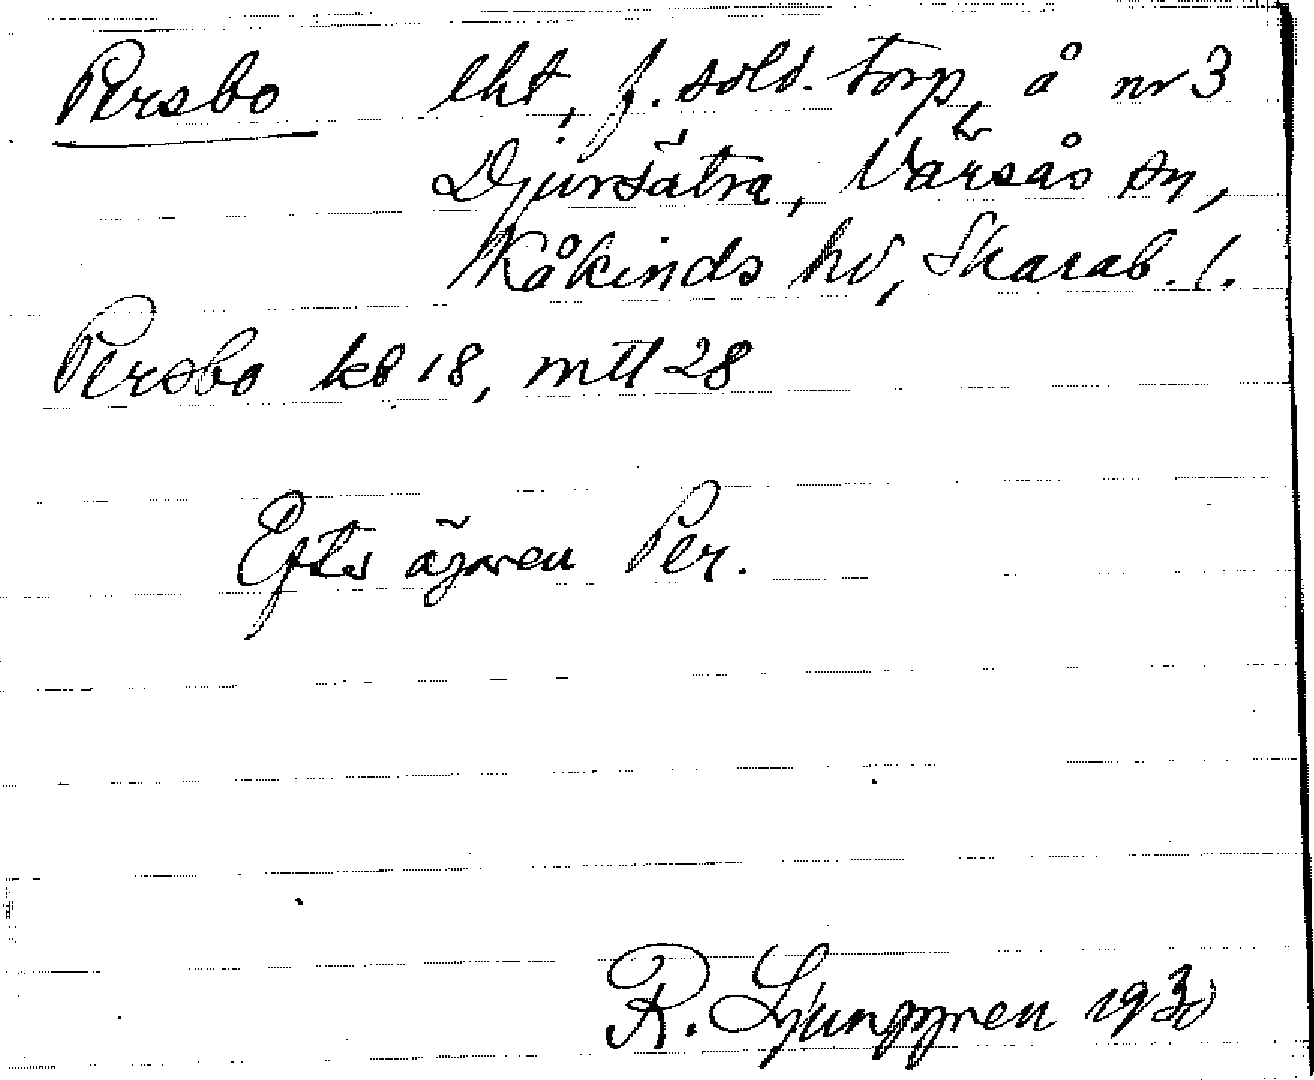 Persbo lht, f. sold. torp, å nr 3
Djursätra, Värsås sn,
Kåkinds hd, Skarab. l.
Persbo kb 18, mtl 28
Efter ägaren Per.
R. Ljunggren 1930